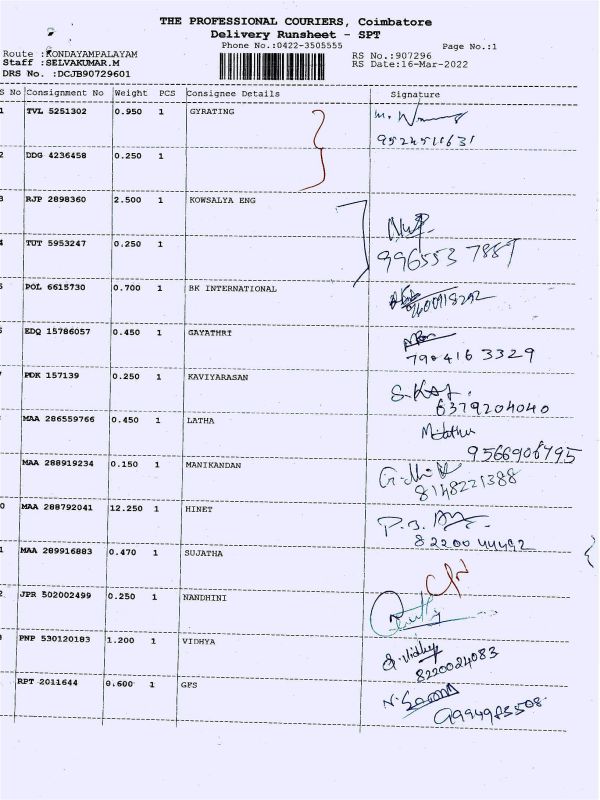 THE PROFESSIONAL COURIERS, Coimbatore
Delivery Runsheet - SPT
Phone No.:0422-3505555 Page No.:1
Route :KONDAYAMPALAYAM RS No.:907296
Staff :SELVAKUMAR.M RS Date:16-Mar-2022
DRS No. :DCJB90729601
S No Consignment No Weight PCS Consignee Details Signature
1 TVL 5251302 0.950 1 GYRATING
9524511631
2 DDG 4236458 0.250 1
3 RJP 2898360 2.500 1 KOWSALYA ENG
4 TUT 5953247 0.250 1
996553 7887
5 POL 6615730 0.700 1 BK INTERNATIONAL
9600918292
6 EDQ 15786057 0.450 1 GAYATHRI
790416 3329
7 PDK 157139 0.250 1 KAVIYARASAN
6379204040
MAA 286559766 0.450 1 LATHA
9566906795
MAA 288919234 0.150 1 MANIKANDAN
8148221388
0 MAA 288792041 12.250 1 HINET
82200 44492
1 MAA 289916883 0.470 1 SUJATHA
2 JPR 502002499 0.250 1 NANDHINI
3 PNP 530120183 1.200 1 VIDHYA
8220024083
RPT 2011644 0.600 1 GFS
9994983508